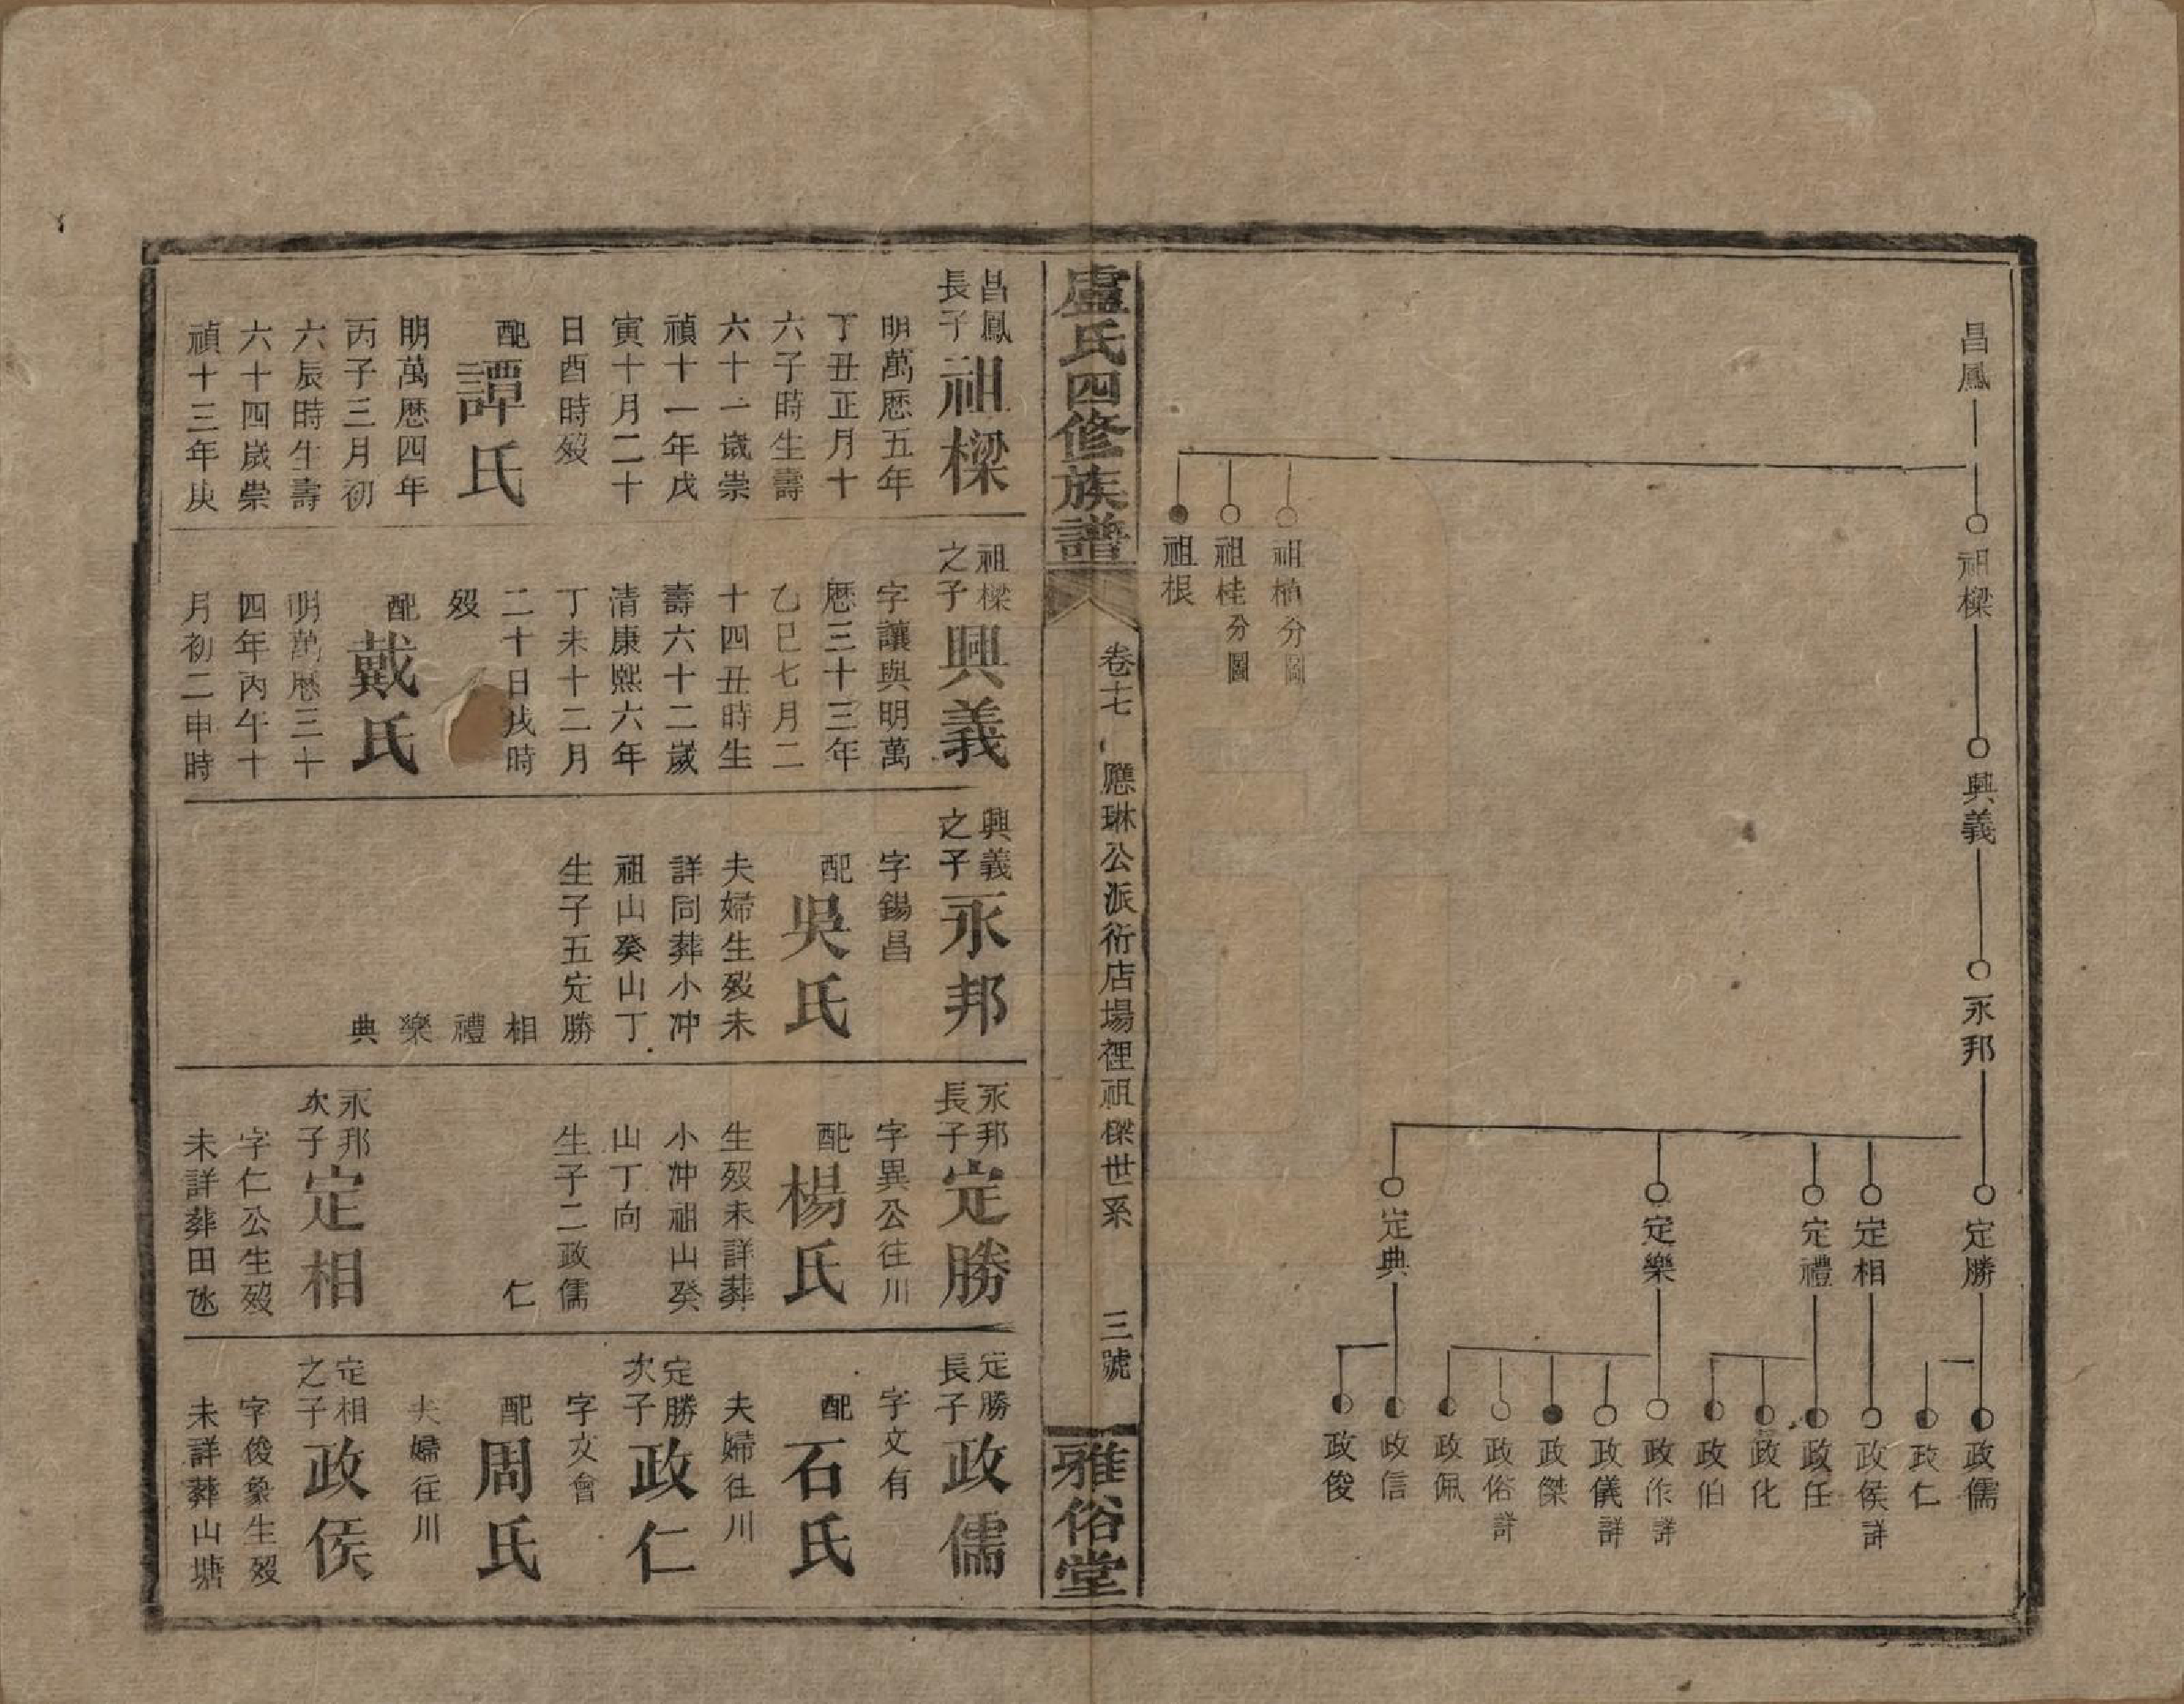 昌鳳
祖樑
祖植分圖
祖桂分圖
祖根
興義
永邦
定勝
定相
定禮
定樂
定典
政儒
政仁
政侯詳
政任
政化
政伯
政作詳
政儀詳
政傑
政俗詳
政佩
政信
政俊
盧氏四修族譜
卷十七
應琳公派衍店場裡祖樑世系
三號
雅俗堂
昌鳳
長子
祖樑
明萬歷五年
丁丑正月十
六子時生壽
六十一歲崇
禎十一年戊
寅十月二十
日酉時歿
配
譚氏
明萬歷四年
丙子三月初
六辰時生壽
六十四歲崇
禎十三年庚
祖樑
之子
興義
字讓與明萬
歷三十三年
乙巳七月二
十四丑時生
壽六十二歲
清康熙六年
丁未十二月
二十日戌時
歿
配
戴氏
明萬歷三十
四年丙午十
月初二申時
興義
之子
永邦
字錫昌
配
吳氏
夫婦生歿未
詳同葬小冲
祖山癸山丁
生子五定勝
相
禮
樂
典
永邦
長子
定勝
字異公往川
配
楊氏
生歿未詳葬
小冲祖山癸
山丁向
生子二政儒
仁
永邦
次子
定相
字仁公生歿
未詳葬田氹
定勝
長子
政儒
字文有
配
石氏
夫婦往川
定勝
次子
政仁
字文會
配
周氏
夫婦往川
定相
之子
政侯
字俊象生歿
未詳葬山塘